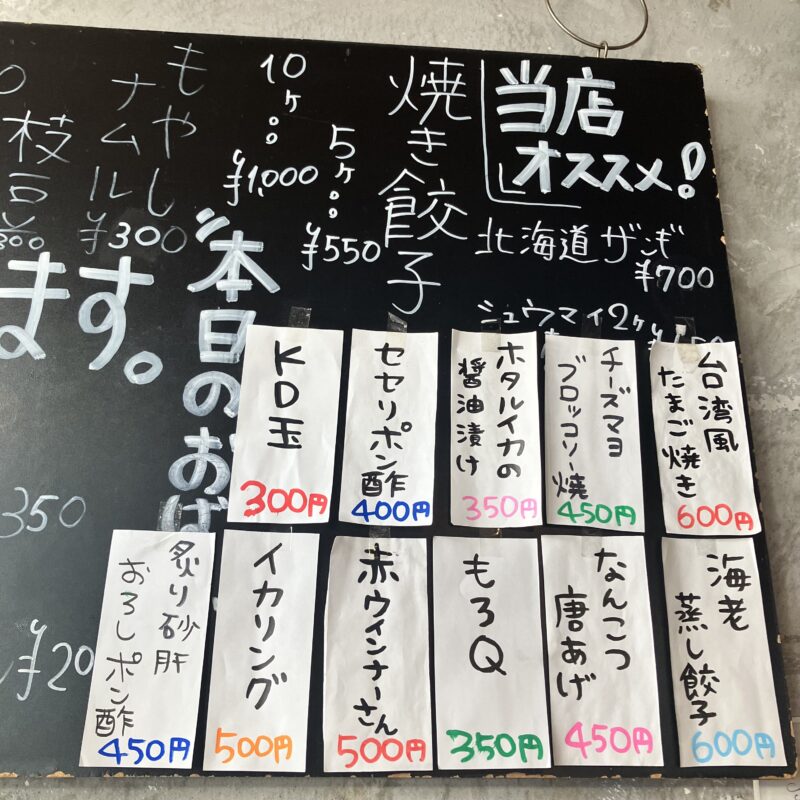 当店
オススメ!
北海道ザンギ
¥700
シュウマイ2ケ
焼き餃子
5ケ。。
¥550
10ケ。。
¥1,000
もやし
ナムル
¥300
枝豆
300
本日のおば
ます。
350
¥20
台湾風
たまご焼き
600円
チーズマヨ
ブロッコリー焼
450円
ホタルイカの
醤油漬け
350円
セセリポン酢
400円
KD玉
300円
海老
蒸し餃子
600円
なんこつ
唐あげ
450円
もろQ
350円
赤ウィンナーさん
500円
イカリング
500円
炙り砂肝
おろしポン酢
450円